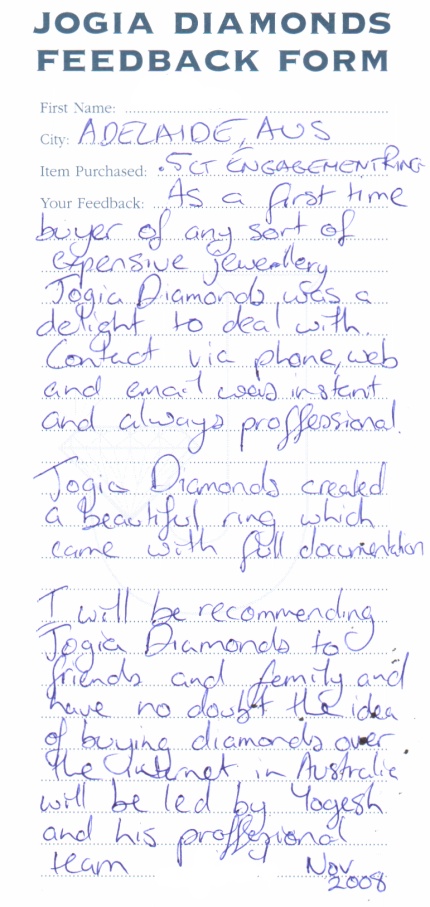 JOGIA DIAMONDS
FEEDBACK FORM
First Name:
City: ADELAIDE, AUS
Item Purchased: .5CT ENGAGEMENT RING
Your Feedback: As a first time
buyer of any sort of
expensive jewellery
Jogia Diamonds was a
delight to deal with.
Contact via phone, web
and email was instant
and always proffessional.
Jogia Diamonds created
a beautiful ring which
came with full documentation
I will be recommending
Jogia Diamonds to
friends and family and
have no doubt the idea
of buying diamonds over
the Internet in Australia
will be led by Yogesh
and his proffesional
team Nov
2008